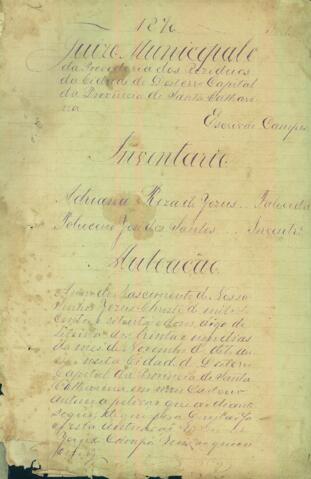 1876
Juizo Municipale
da Provedoria dos Reziduos
da Cidade do Desterro Capital
da Provincia de Santa Cathari
na
Escrivão Campos
Inventario
Adriana Roza de Jezus Falecida
José dos Santos Invent.e
Autoação
Anno do Nascimento de Nosso
Senhor Jezus Christo de mil oito
centos e setenta e
trinta dias
do mez de Novembro do dito an
no nesta Cidade do Desterro
Capital da Provincia de Santa
Catharina em meu Cartorio
autuo a petição que ao diante
segue, do que para constar faço
esta autoação
Campos